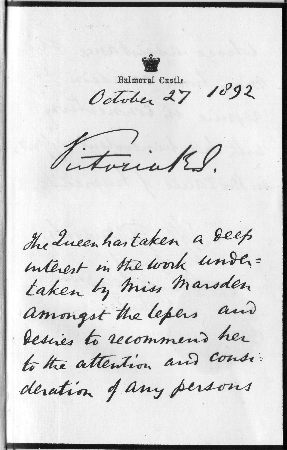 Balmoral Castle
October 27 1892
Victoria R I.
The Queen has taken a deep
interest in the work under=
taken by Miss Marsden
amongst the lepers and
desires to recommend her
to the attention and consi:
deration of any persons